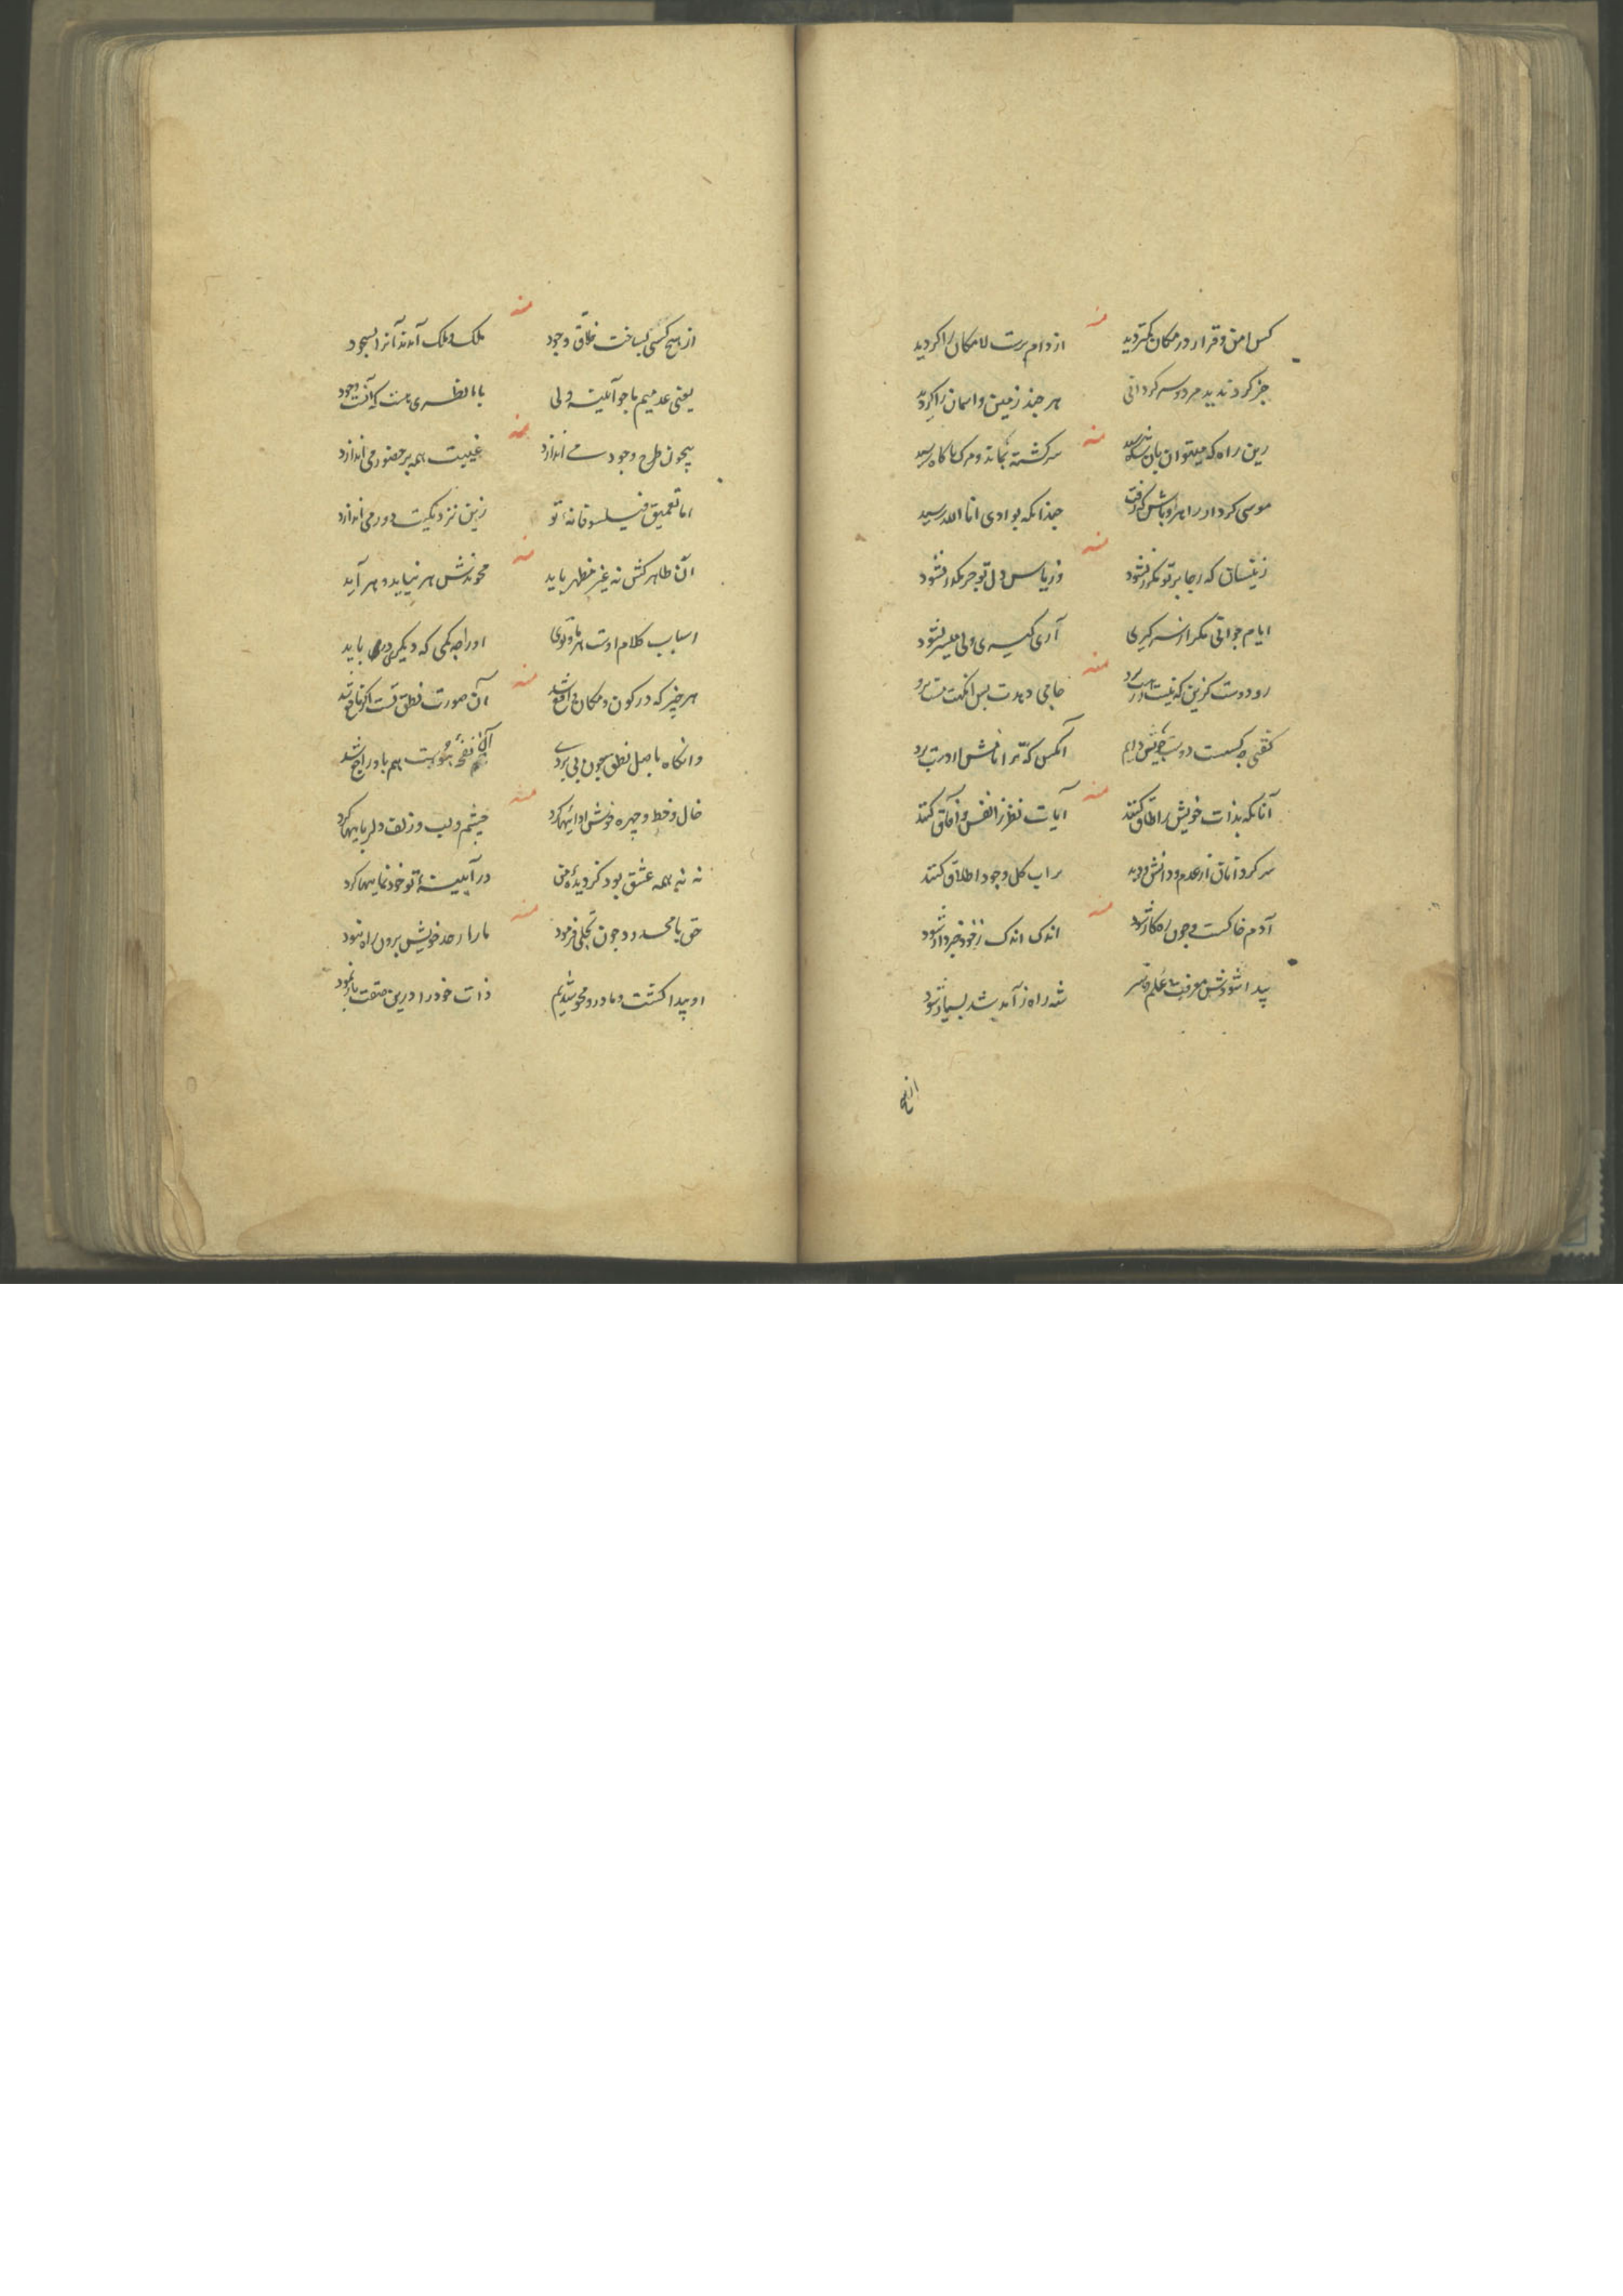 منه
کس امن و قرار در مکان کمتر دید از دام برست لامکان را کردید
جز کرد ندید مرد و سر کردانی هر چند زمین و اسمان را کردید
منه
زین راه که میتوان بان شاه رسید سر کشته نماند و مرک ناکاه رسید
موسی کردار راهرو باش که رفت چندانکه بوادی انا الله رسید
منه
زینسان که رجا بر تو مکرر نشود وز یاس دل تو جز مکدر نشود
ایام جوانی مکر از سر کیری آری کیری ولی میسر نشود
منه
رو دوست کزین که نیست در حاجی و بدت بس انکت
کفتی چه کسست دوست خویش دانم آنکس که ترا
منه
آنانکه بذات خویش را طاق کنند آیات نظر ز انفس و آفاق کنند
سر کردانان از عدم و دانش و دید بر آب کل وجود اطلاق کنند
منه
آدم خاکست و چون در کار شود اندک اندک ز خود خبردار شود
پیدا شودش معرفت و علم و شه راه ز آمد شد بسیار شود
انه
منه
از هیچ کسی بساخت خلاق وجود ملک و ملک آمدند آنرا بسجود
یعنی عدمیم ما چو آئینه ولی با ما نظری هست که آنست وجود
منه
بیچون طرح وجود می اندازد غیبت همه بر حضور می اندازد
اما تعمیق فیلسوفانه تو زین نزدیکیت دور می اندازد
منه
آن ظاهر کش نه غیر مظهر باید محو ندش هر نیاید و هر آید
اسباب کلام اوست هر ما و توئی او را چه کمی که دیکری باید
منه
هر چیز که در کون و مکان واقع شد آن صورت نطق تست اکر نافع شد
وانکاه باصل نطق چون پی بردی آن نفخه هم باو راجع شد
منه
خال و خط و چهره خوش ادائیها کرد چشم و لب و زلف دلربائیها کرد
نه نه همه عشق بود کز دیده من در آئینه تو خودنمائیها کرد
منه
حق با محدود چون تجلی فرمود ما را ز حد خویش برون راه نبود
او پیدا کشت و ما درو محو شدیم ذات خود را درین صفت باز نمود